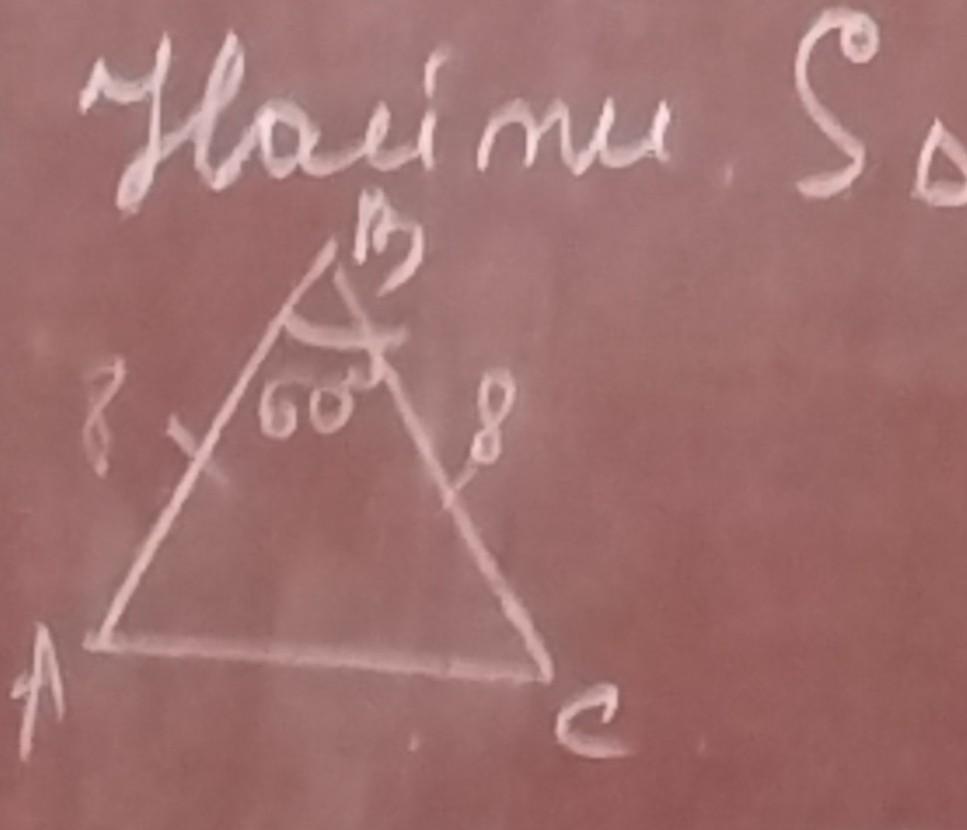 Найти S △
B
60°
8 8
A
C